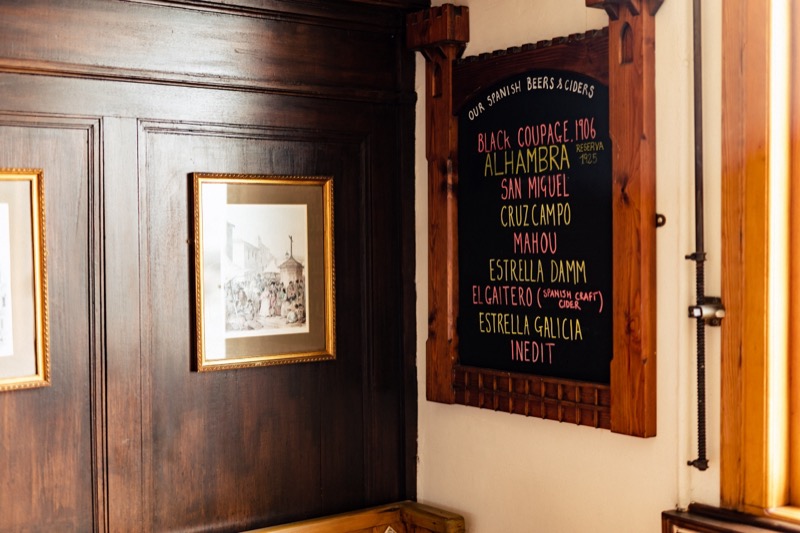 OUR SPANISH BEERS & CIDERS
BLACK COUPAGE. 1906
ALHAMBRA RESERVA 1925
SAN MIGUEL
CRUZCAMPO
MAHOU
ESTRELLA DAMM
EL GAITERO (SPANISH CRAFT CIDER)
ESTRELLA GALICIA
INEDIT